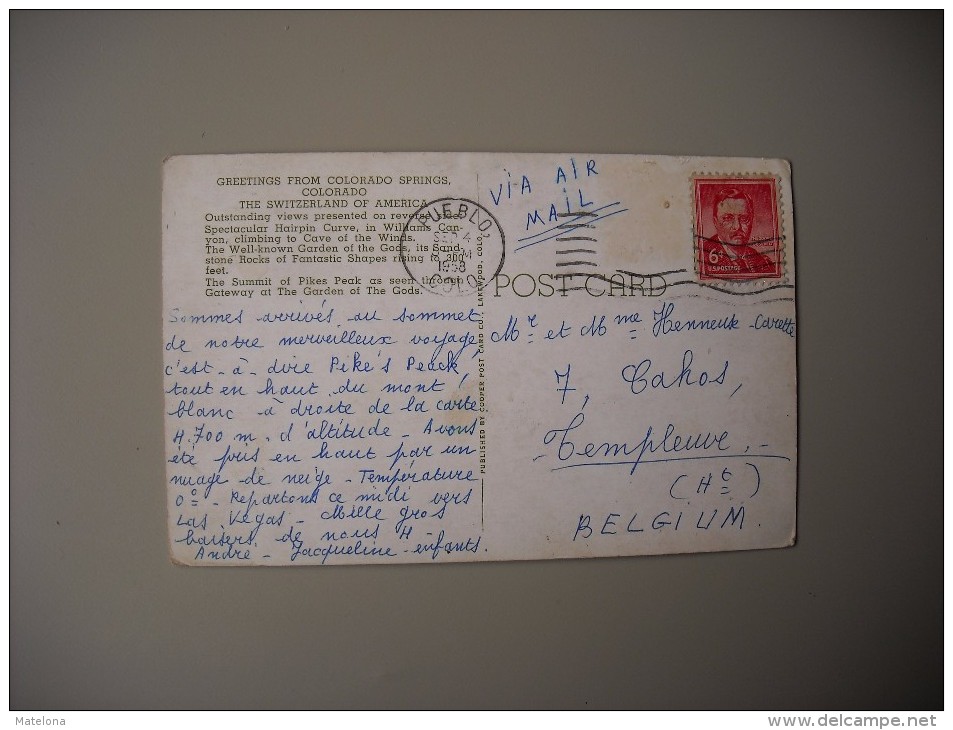 GREETINGS FROM COLORADO SPRINGS,
COLORADO
THE SWITZERLAND OF AMERICA
Outstanding views presented on reverse side:
Spectacular Hairpin Curve, in Williams Can-
yon, climbing to Cave of the Winds.
The Well-known Garden of the Gods, its Sand-
stone Rocks of Fantastic Shapes rising to 300
feet.
The Summit of Pikes Peak as seen through
Gateway at The Garden of The Gods.
Sommes arrivés au sommet
de notre merveilleux voyage,
c'est-à-dire Pike's Peack,
tout en haut du mont
blanc à droite de la carte
4.700 m. d'altitude - Avons
été pris en haut par un
nuage de neige - Température
0° - Repartons ce midi vers
Las Vegas - Mille gros
baisers de nous 4 -
André - Jacqueline - enfants.
PUBLISHED BY COOPER POST CARD CO., LAKEWOOD, COLO.
PUEBLO,
SEP 4
PM
1958
COLO.
VIA AIR
MAIL
6¢
U.S. POSTAGE
POST CARD
Mr et Mme Henneuse-Carette
7, Cahos,
Templeuve.-
(Ht)
BELGIUM.
Matelona
www.delcampe.net